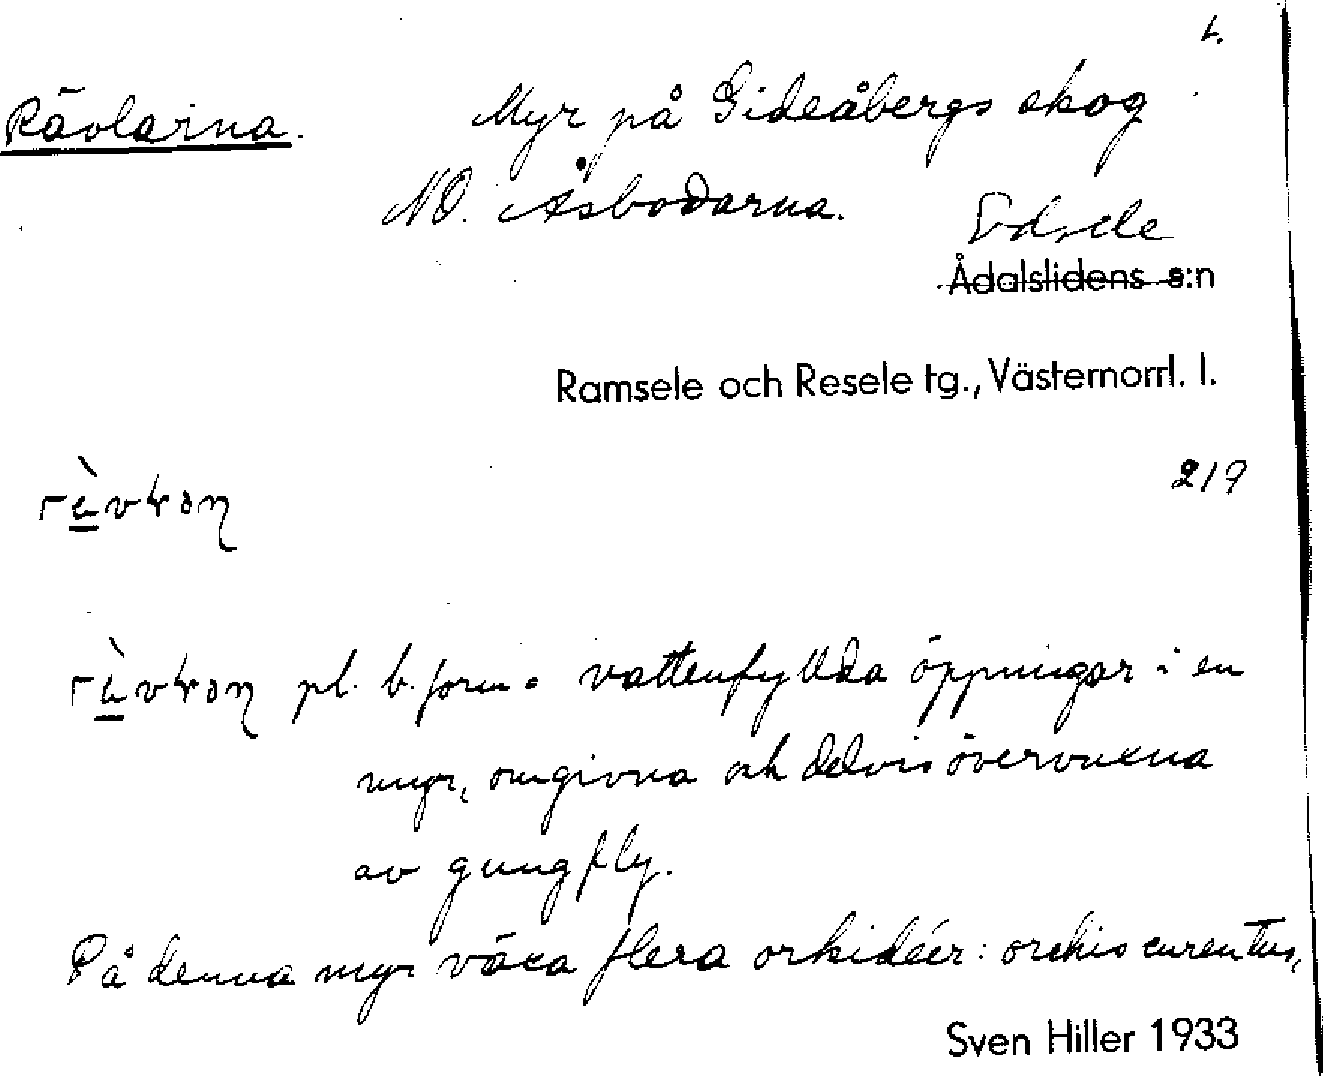 t.
Rävlarna. Myr på Gideåbergs skog
NO. Åsbodarna. Edsele
Ådalslidens s:n
Ramsele och Resele tg., Västernorrl. l.
219
pl. b. form = vattenfyllda öppningar i en
myr, omgivna och delvis övervuxna
av gungfly.
På denna myr växa flera orkidéer: orchis curentus,
Sven Hiller 1933